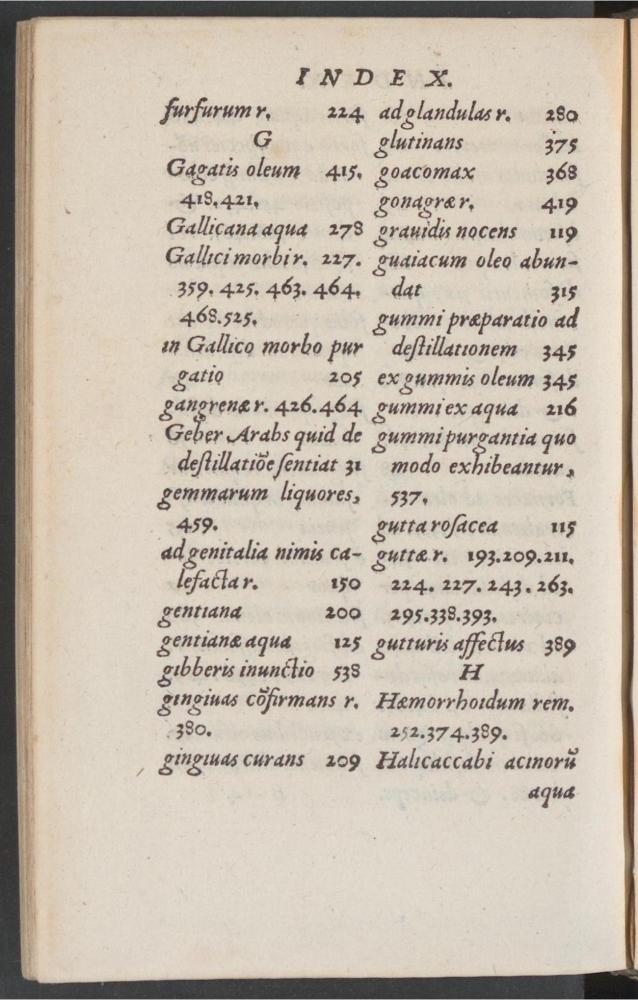 INDEX.
furfurum r. 224
G
Gagatis oleum 415.
418.421.
Gallicana aqua 278
Gallici morbi r. 227.
359. 425. 463. 464.
468.525.
in Gallico morbo pur
gatio 205
gangrenæ r. 426.464
Geber Arabs quid de
destillatiõe sentiat 31
gemmarum liquores,
459.
ad genitalia nimis ca-
lefacta r. 150
gentiana 200
gentianæ aqua 125
gibberis inunctio 538
gingiuas cõfirmans r.
380.
gingiuas curans 209
ad glandulas r. 280
glutinans 375
goacomax 368
gonagræ r. 419
grauidis nocens 119
guaiacum oleo abun-
dat 315
gummi præparatio ad
destillationem 345
ex gummis oleum 345
gummi ex aqua 216
gummi purgantia quo
modo exhibeantur,
537.
gutta rosacea 115
guttæ r. 193.209.211.
224. 227. 243. 263.
295.338.393.
gutturis affectus 389
H
Hæmorrhoidum rem.
252.374.389.
Halicaccabi acinorũ
aqua